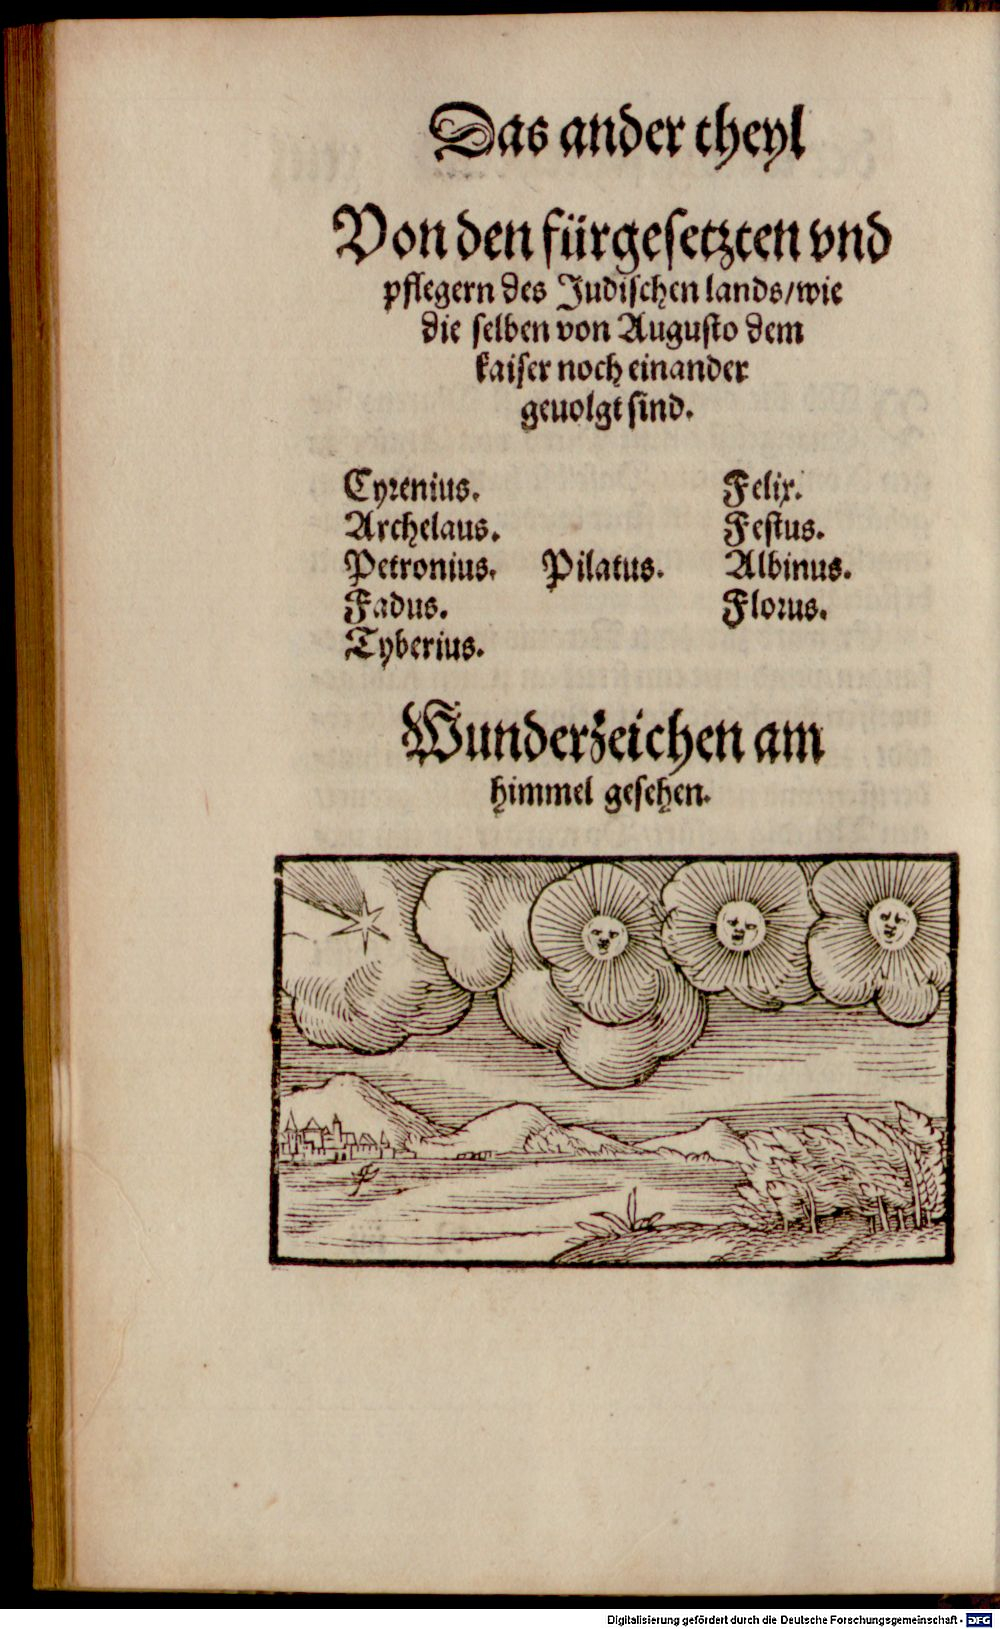 Das ander theyl
Von den fürgesetzten vnd
pflegern des Judischen lands/wie
die selben von Augusto dem
kaiser noch einander
geuolgt sind.
Cyrenius.
Archelaus.
Petronius.
Fadus.
Tyberius.
Pilatus.
Felix.
Festus.
Albinus.
Florus.
Wunderzeichen am
himmel gesehen.
Digitalisierung gefördert durch die Deutsche Forschungsgemeinschaft - DFG